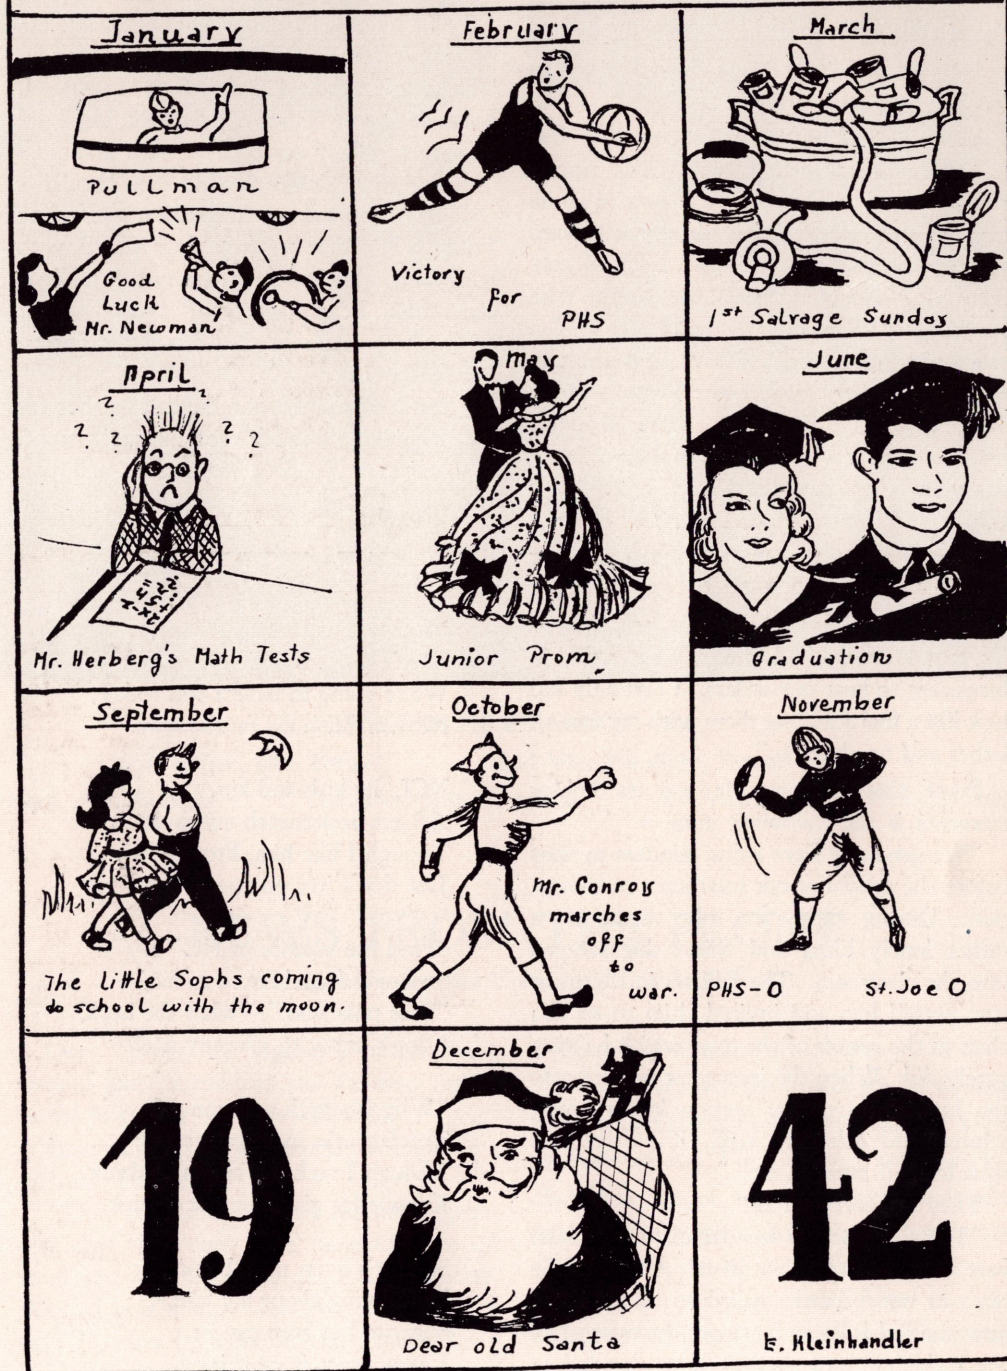 January
Pullman
Good
Luck
Mr. Newman
February
Victory
for
PHS
March
1st Salvage Sunday
April
? ? ? ? ? ?
Mr. Herberg's Math Tests
May
Junior Prom
June
Graduation
September
The little Sophs coming
to school with the moon.
October
Mr. Conroy
marches
off
to
war.
November
PHS-0 St. Joe 0
19
December
Dear old Santa
42
E. Kleinhandler